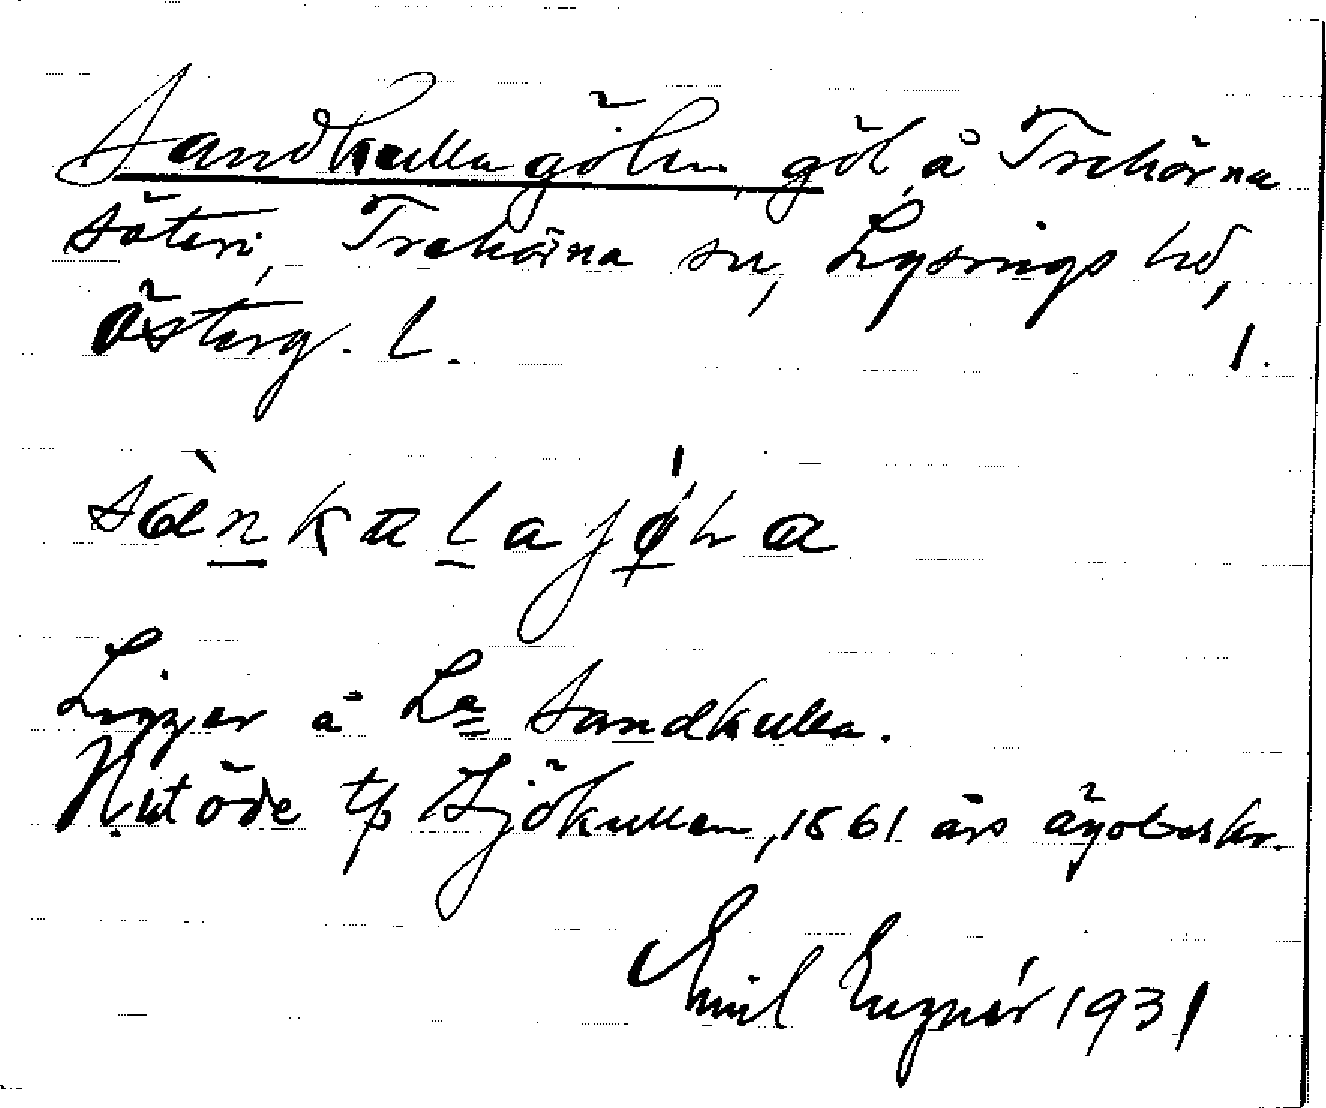 Sandkullagölen, göl å Trehörna
säteri, Trehörna sn, Lysings hd,
Österg. l. 1.
sànkalajø̀la
Ligger å La Sandkulla.
Nu öde tp Sjökullen, 1861 års ägobeskr.
Emil Eugnér 1931